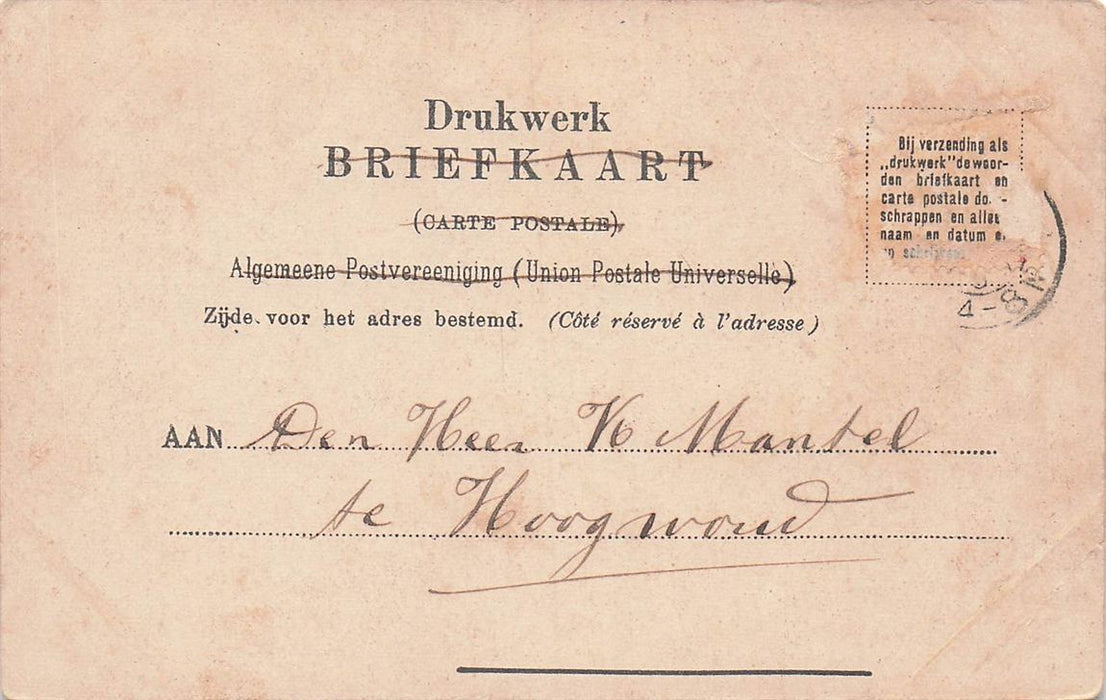 Drukwerk
BRIEFKAART
(CARTE POSTALE)
Algemeene Postvereeniging (Union Postale Universelle)
Zijde voor het adres bestemd. (Côté réservé à l'adresse)
Bij verzending als
„drukwerk" de woor-
den briefkaart en
carte postale do -
schrappen en alles
naam en datum
4-8
AAN Den Heer K Mantel
te Hoogwoud